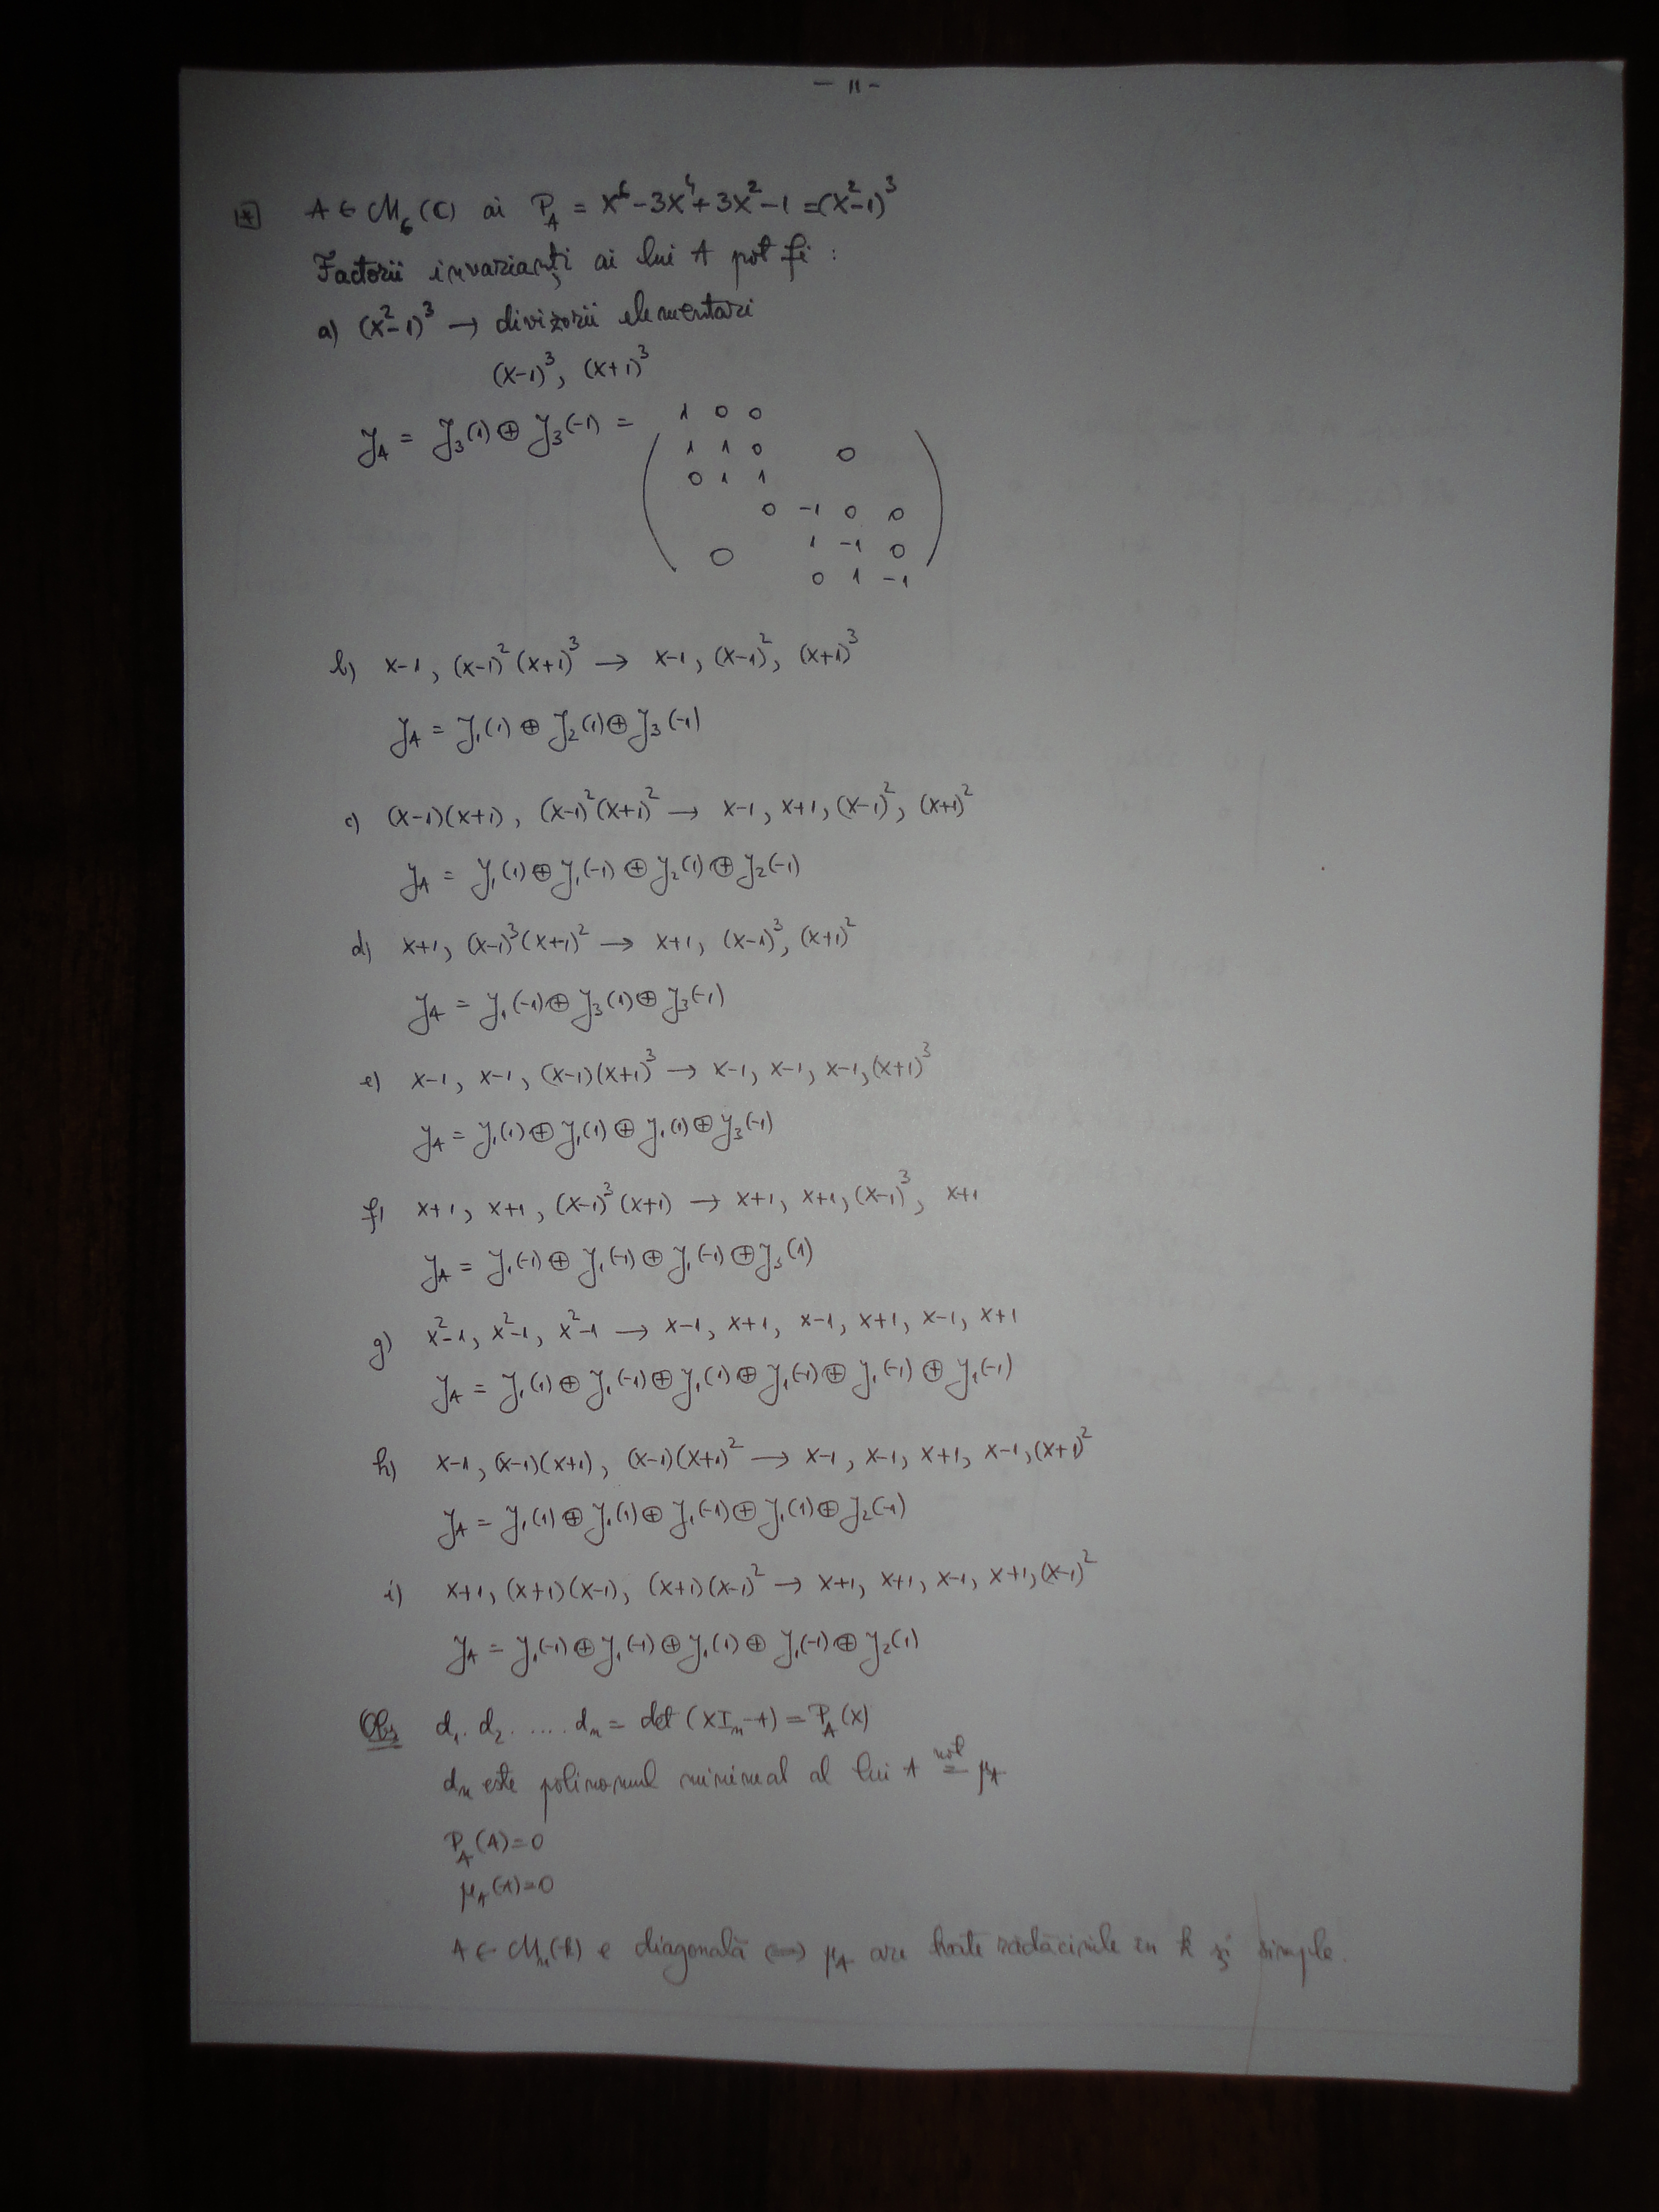 — 11 —
* A ∈ M₆(C) ai P_A = X⁶-3X⁴+3X²-1 = (X²-1)³
Factorii invarianți ai lui A pot fi :
a) (X²-1)³ → divizorii elementari
(X-1)³, (X+1)³
J_A = J₃(1) ⊕ J₃(-1) =
1 0 0
1 1 0 0
0 1 1
0 -1 0 0
0 1 -1 0
0 1 -1
b) X-1, (X-1)²(X+1)³ → X-1, (X-1)², (X+1)³
J_A = J₁(1) ⊕ J₂(1) ⊕ J₃(-1)
c) (X-1)(X+1), (X-1)²(X+1)² → X-1, X+1, (X-1)², (X+1)²
J_A = J₁(1) ⊕ J₁(-1) ⊕ J₂(1) ⊕ J₂(-1)
d) X+1, (X-1)³(X+1)² → X+1, (X-1)³, (X+1)²
J_A = J₁(-1) ⊕ J₃(1) ⊕ J₃(-1)
e) X-1, X-1, (X-1)(X+1)³ → X-1, X-1, X-1, (X+1)³
J_A = J₁(1) ⊕ J₁(1) ⊕ J₁(1) ⊕ J₃(-1)
f) X+1, X+1, (X-1)³(X+1) → X+1, X+1, (X-1)³, X+1
J_A = J₁(-1) ⊕ J₁(-1) ⊕ J₁(-1) ⊕ J₃(1)
g) X²-1, X²-1, X²-1 → X-1, X+1, X-1, X+1, X-1, X+1
J_A = J₁(1) ⊕ J₁(-1) ⊕ J₁(1) ⊕ J₁(-1) ⊕ J₁(-1) ⊕ J₁(-1)
h) X-1, (X-1)(X+1), (X-1)(X+1)² → X-1, X-1, X+1, X-1, (X+1)²
J_A = J₁(1) ⊕ J₁(1) ⊕ J₁(-1) ⊕ J₁(1) ⊕ J₂(-1)
i) X+1, (X+1)(X-1), (X+1)(X-1)² → X+1, X+1, X-1, X+1, (X-1)²
J_A = J₁(-1) ⊕ J₁(-1) ⊕ J₁(1) ⊕ J₁(-1) ⊕ J₂(1)
Obs d₁. d₂ ..... dₙ = det (XIₙ-A) = P_A(X)
dₙ este polinomul minimal al lui A not= μ_A
P_A(A)=0
μ_A(A)=0
A ∈ Mₙ(k) e diagonală ⟺ μ_A are toate rădăcinile în k și simple.